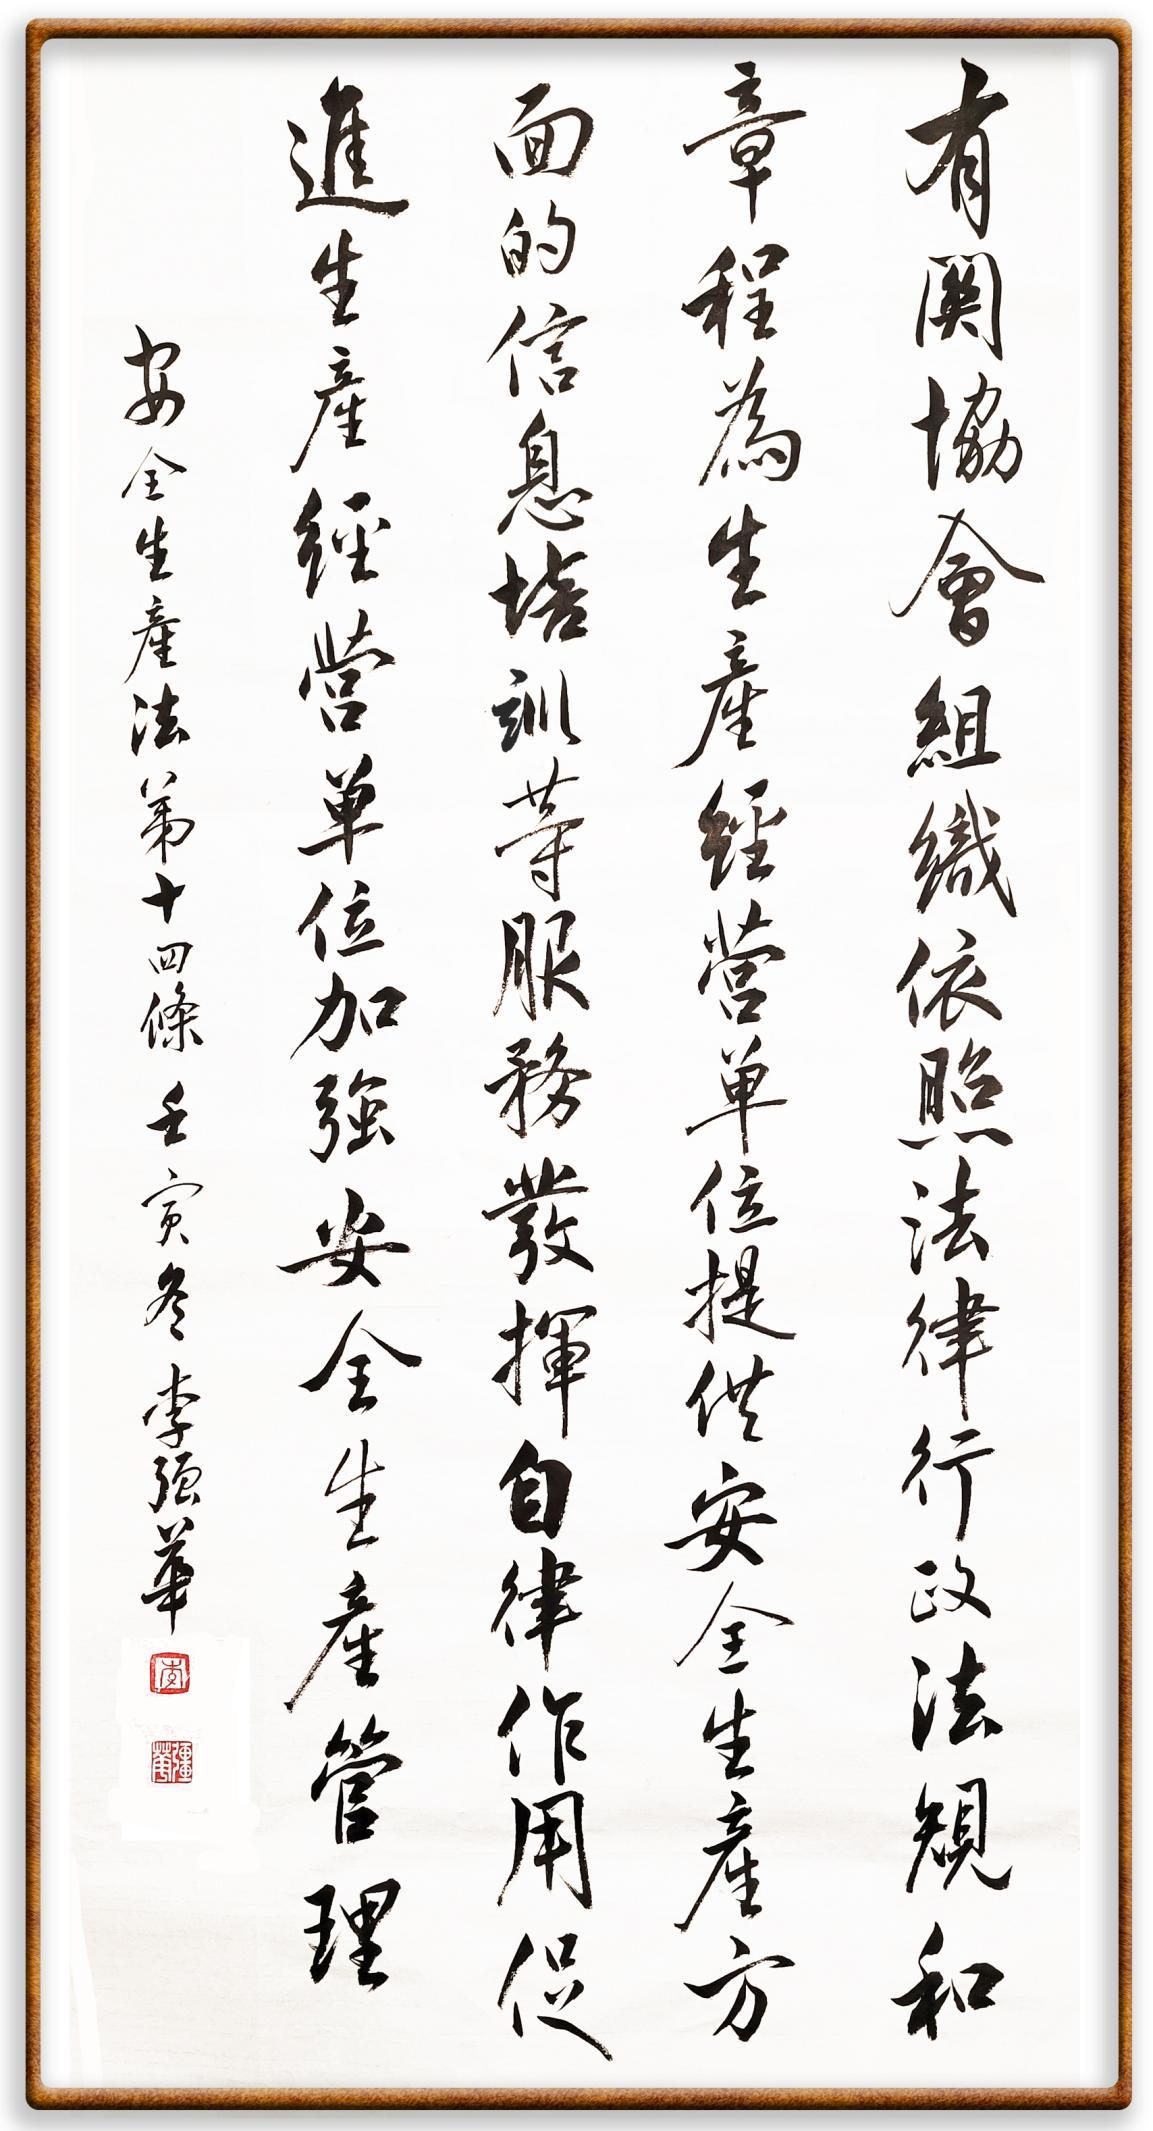 有關協會組織依照法律行政法規和
章程為生產經營單位提供安全生產方
面的信息培訓等服務發揮自律作用促
進生產經營單位加強安全生產管理
安全生產法第十四條 壬寅冬 李强華
李
強華